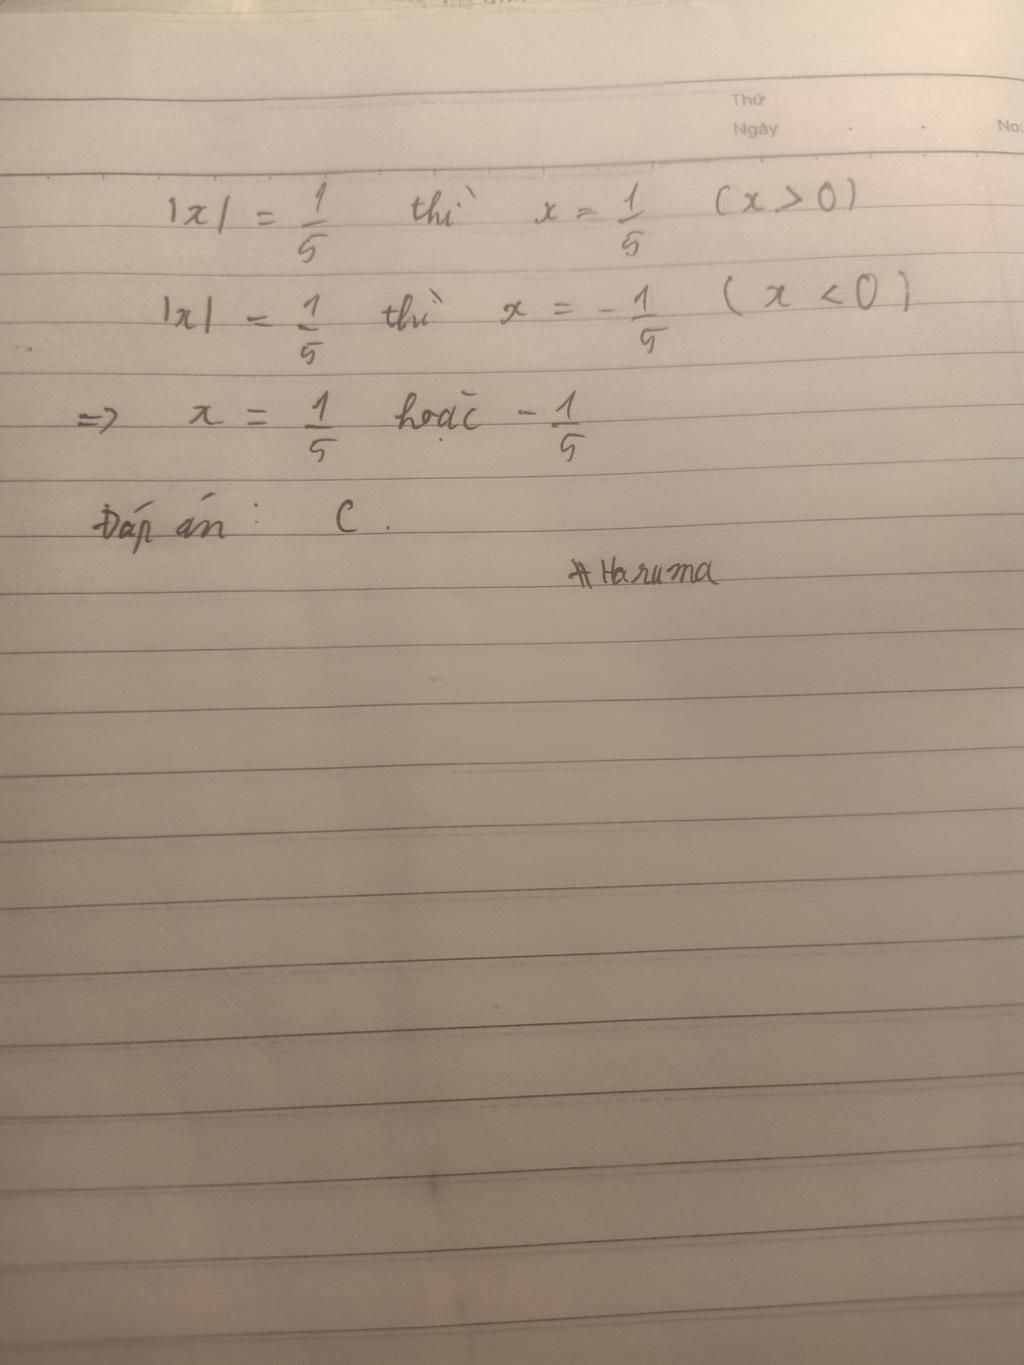 Thứ
Ngày No:
|x| = 1/5 thì x = 1/5 (x > 0)
|x| = 1/5 thì x = - 1/5 (x < 0)
=> x = 1/5 hoặc - 1/5
Đáp án : C .
#Haruma